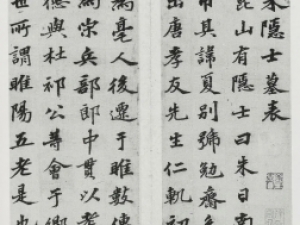 朱隱士墓表
昆山有隱士曰朱日南
市其諱夏別號勉齋
出唐孝友先生仁軌初
為亳人後遷于睢數傳
為宋兵部郎中貫以耆
德與杜祁公等會于鄉
世所謂睢陽五老是也